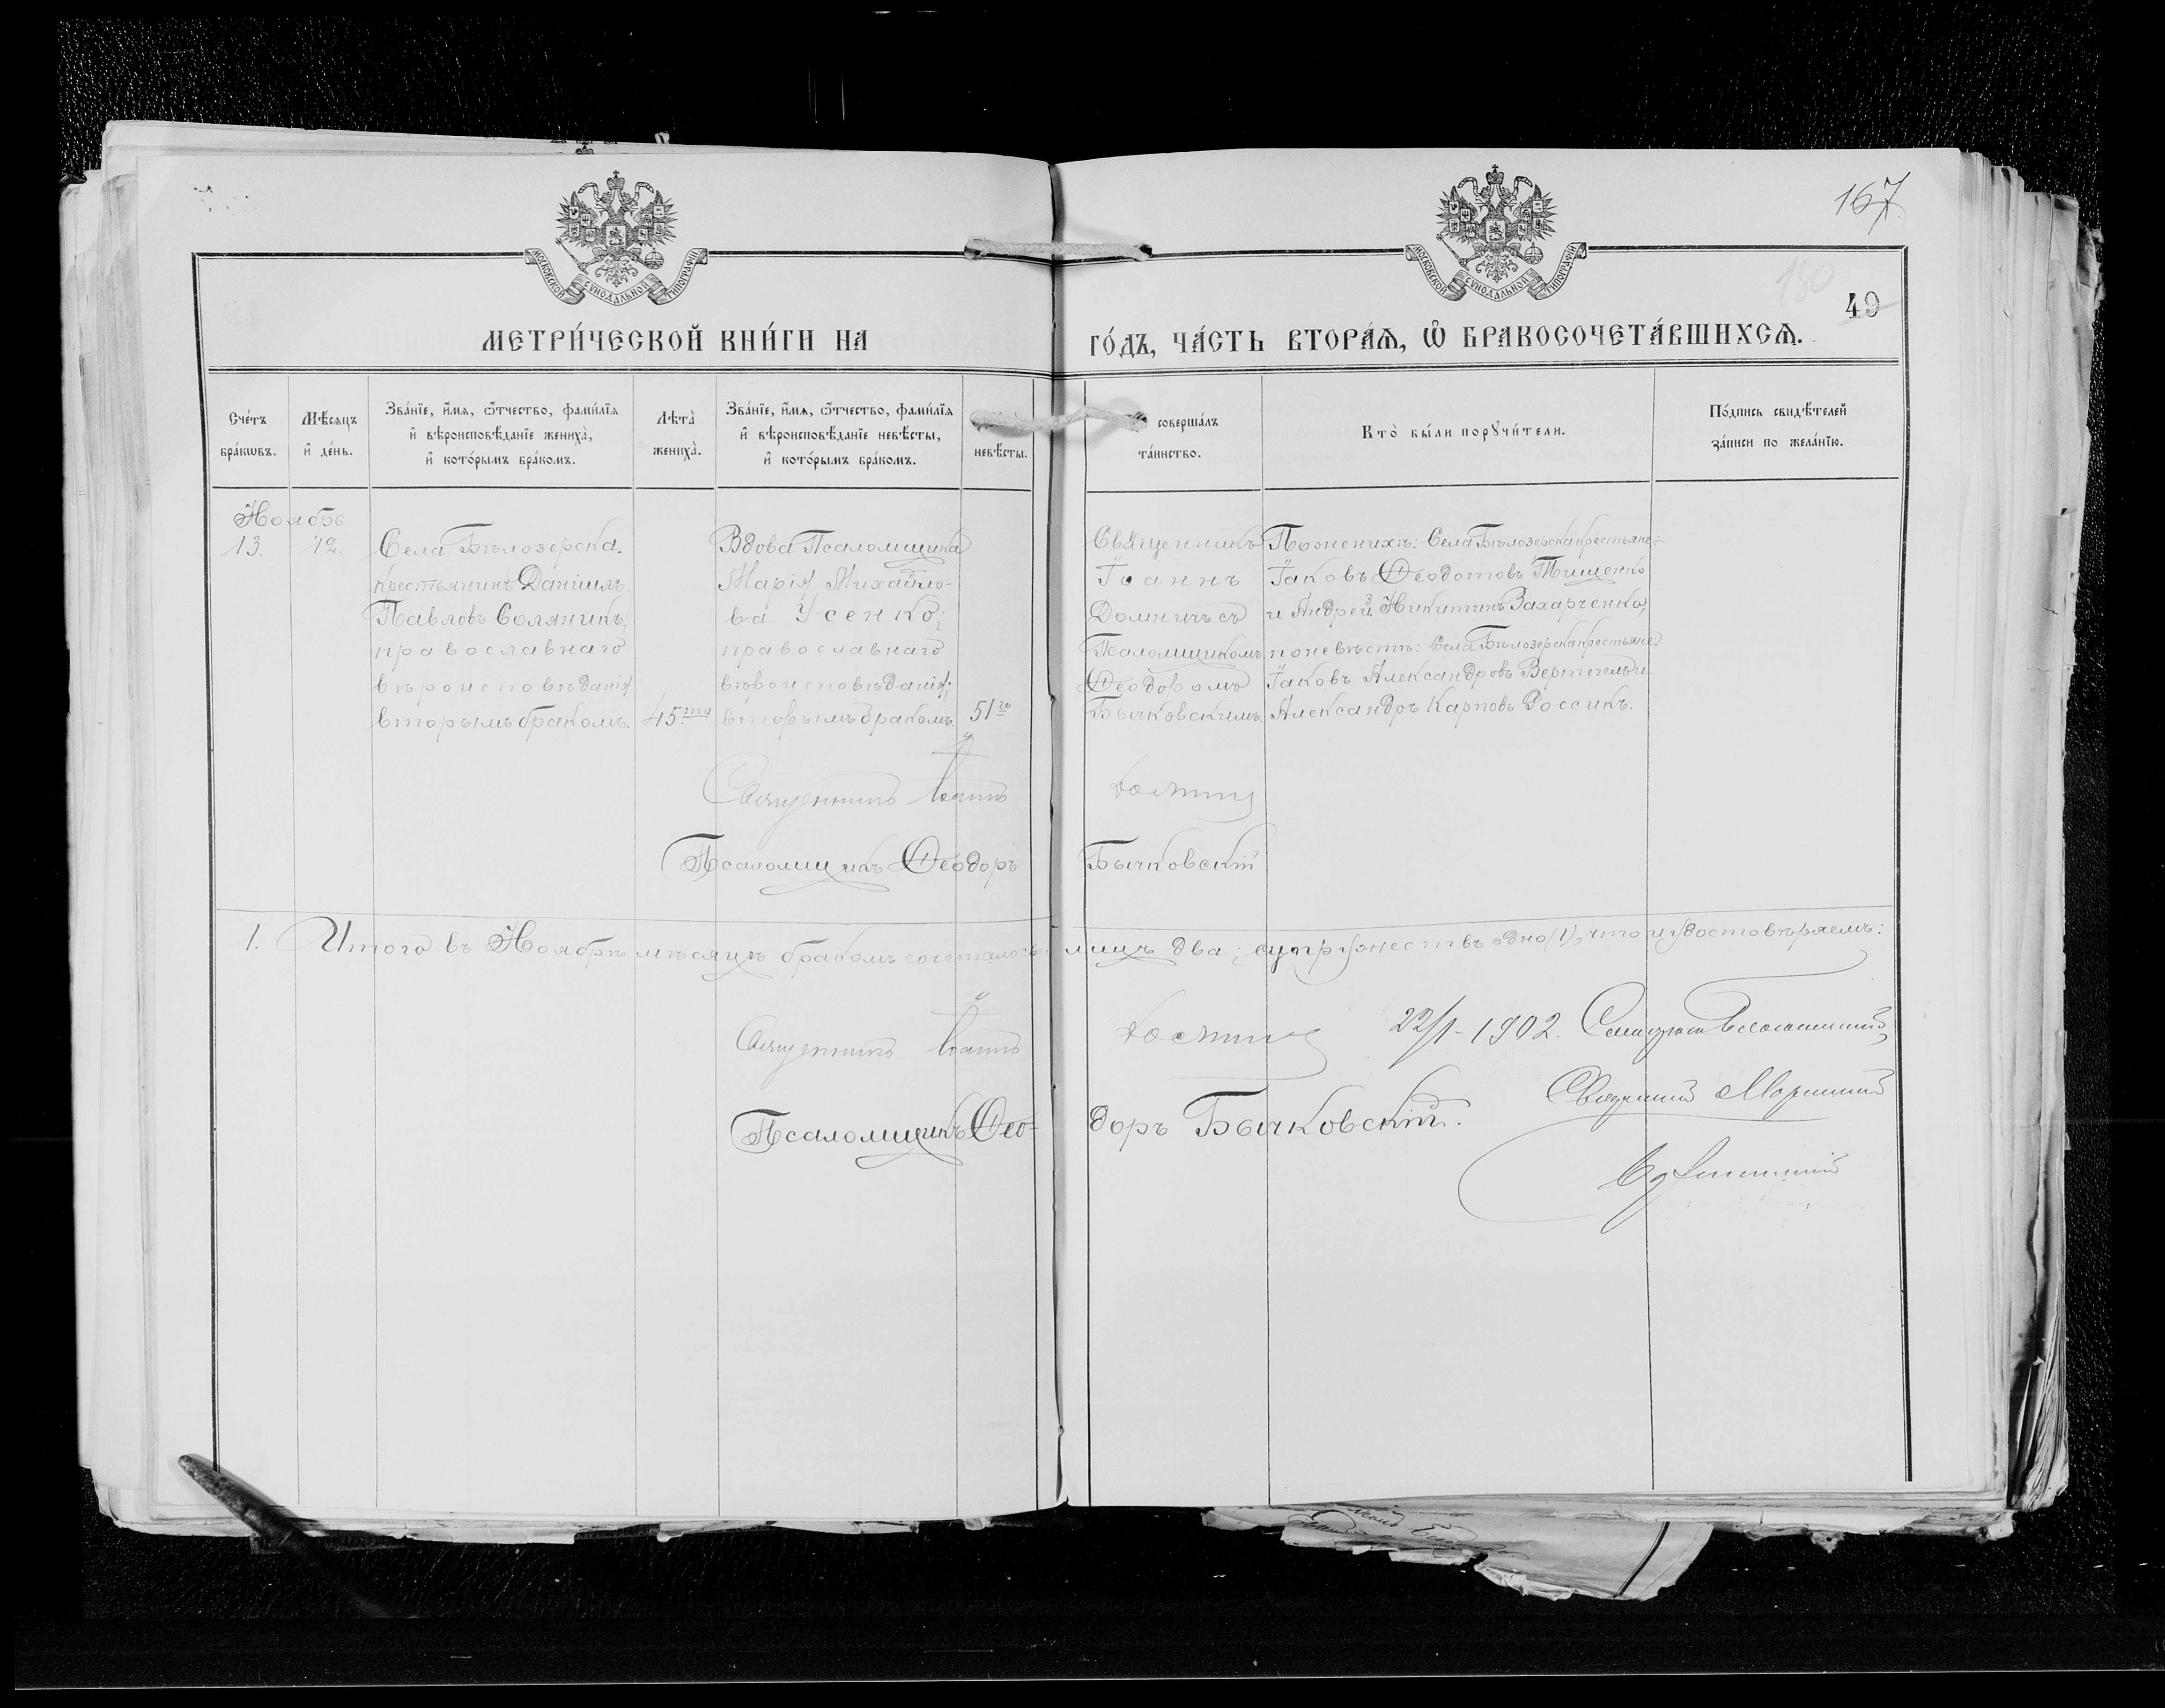 167
180
49
МОСКОВСКОЙ СѴНОДАЛЬНОЙ ТИПОГРАФІИ
МОСКОВСКОЙ СѴНОДАЛЬНОЙ ТИПОГРАФІИ
МЕТРИ́ЧЕСКОЙ КНИ́ГИ НА
ГО́ДЪ, ЧА́СТЬ ВТОРА́Ѧ, Ѽ БРАКОСОЧЕТА́ВШИХСѦ.
Сче́тъ
бра́кѡвъ.
Мѣ́сяцъ
и҆ де́нь.
Зва́нїе, и҆́мѧ, ѻ҆́тчество, фами́лїѧ
и҆ вѣроисповѣ́данїе жениха̀,
и҆ кото́рымъ бра́комъ.
Лѣта̀
жениха̀.
Зва́нїе, и҆́мѧ, ѻ҆́тчество, фами́лїѧ
и҆ вѣроисповѣ́данїе невѣ́сты,
и҆ кото́рымъ бра́комъ.
невѣ́сты.
соверша́лъ
та́инство.
Кто̀ бы́ли порꙋчи́тели.
По́дпись свидѣ́телей
за́писи по жела́нїю.
Ноябрь.
13.
12.
Села Бѣлозерска.
крестьянинъ Даніилъ
Павловъ Соляникъ;
православнаго
вѣроисповѣданія
вторымъ бракомъ.
45ти
Вдова Псаломщика
Марія Михайло-
ва Усенко;
православнаго
вѣроисповѣданія;
вторымъ бракомъ.
51го
Священникъ
Іоаннъ
Домничъ съ
Псаломщикомъ
Ѳеодоромъ
Бычковскимъ.
По женихѣ: Села Бѣлозерска крестьяне
Іаковъ Ѳеодотовъ Тищенко
и Андрей Никитинъ Захарченко;
по невѣстѣ: Села Бѣлозерска крестьяне
Іаковъ Александровъ Вертечелъ и
Александръ Карповъ Россикъ.
Священникъ Іоаннъ Домнич
Псаломщикъ Ѳеодоръ Бычковскій
1. Итого въ Ноябрѣ мѣсяцѣ бракомъ сочеталось лицъ два; супружествъ одно (1), что и удостовѣряемъ:
Священникъ Іоаннъ Домнич
22/I-1902.
Псаломщикъ Ѳео-
доръ Бычковскій.